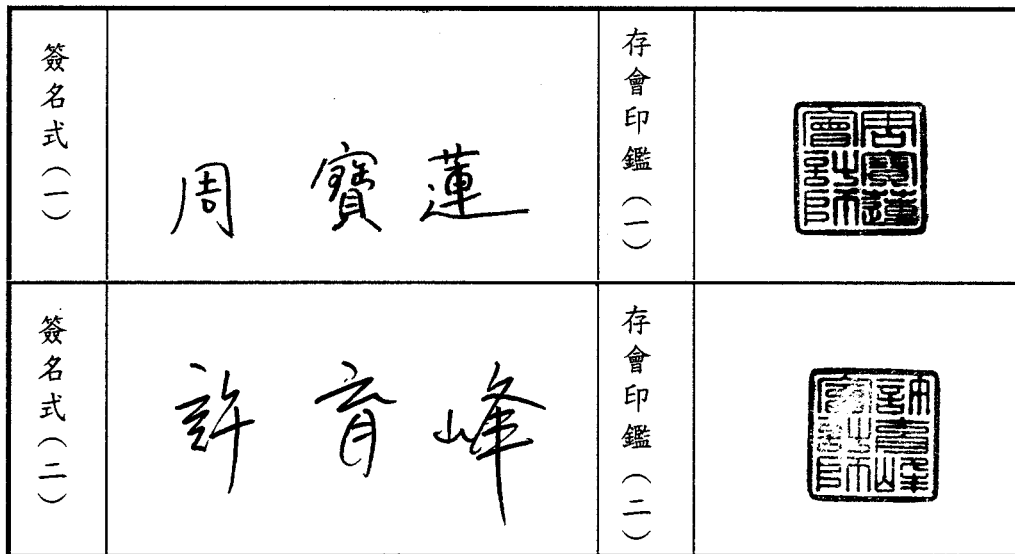 簽名式（一）
周寶蓮
存會印鑑（一）
周寶蓮會計師
簽名式（二）
許育峰
存會印鑑（二）
許育峰會計師